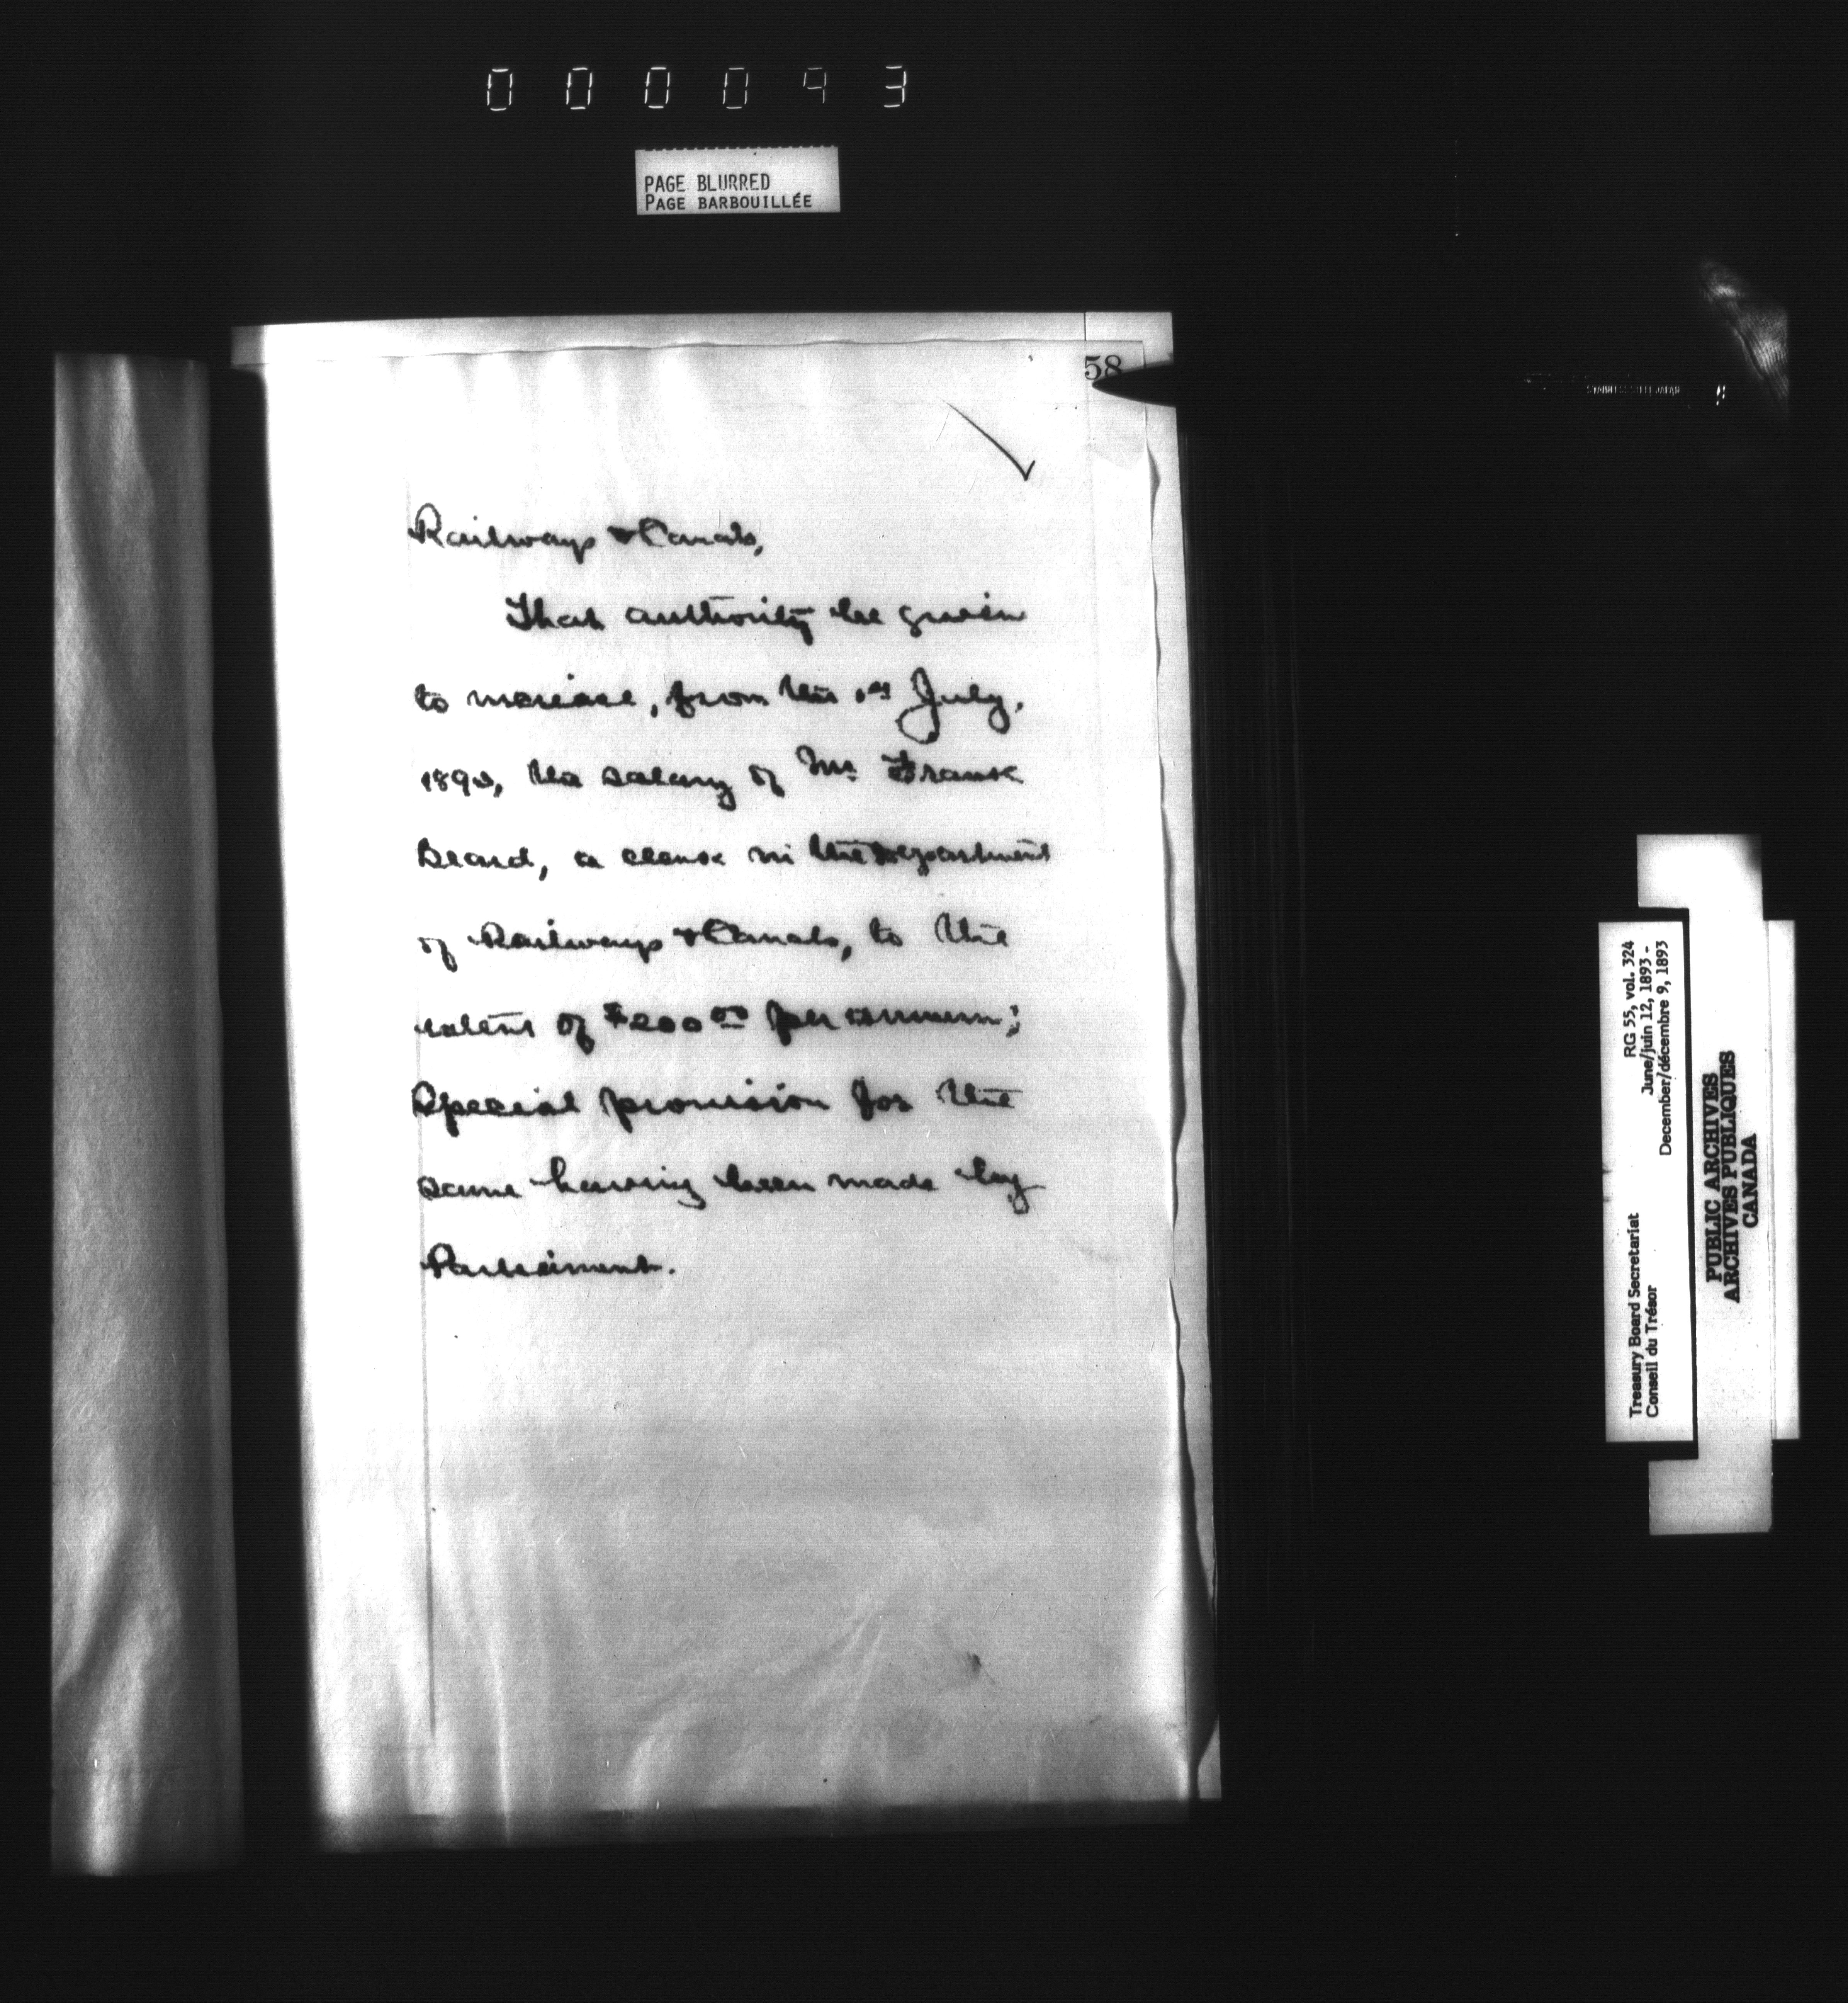 000093
PAGE BLURRED
PAGE BARBOUILLÉE
58
Railways & Canals,
That authority be given
to increase, from the 1st July,
1893, the salary of Mr Frank
Beard, a clerk in the Department
of Railways & Canals, to the
extent of $200 00 per annum;
Special provision for the
same having been made by
Parliament.
RG 55, vol. 324
June/juin 12, 1893 -
December/décembre 9, 1893
Treasury Board Secretariat
Conseil du Trésor
PUBLIC ARCHIVES
ARCHIVES PUBLIQUES
CANADA